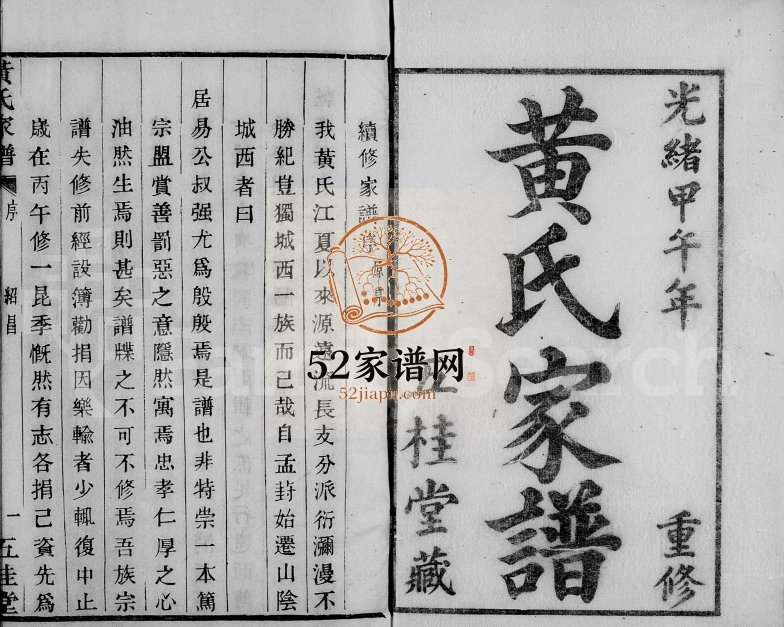 光緒甲午年 重修
黃氏家譜
五桂堂藏
續修家譜序 原序
我黃氏江夏以來源遠流長支分派衍瀰漫不
勝紀豈獨城西一族而已哉自孟葑始遷山陰
城西者曰
居易公叔强尤爲殷殷焉是譜也非特崇一本篤
宗盟賞善罰惡之意隱然寓焉忠孝仁厚之心
油然生焉則甚矣譜牒之不可不修焉吾族宗
譜失修前經設簿勸捐因樂輸者少輒復中止
歲在丙午修一昆季慨然有志各捐己資先爲
黃氏家譜 序 紹昌 一 五桂堂
52家谱网
52jiapu.com